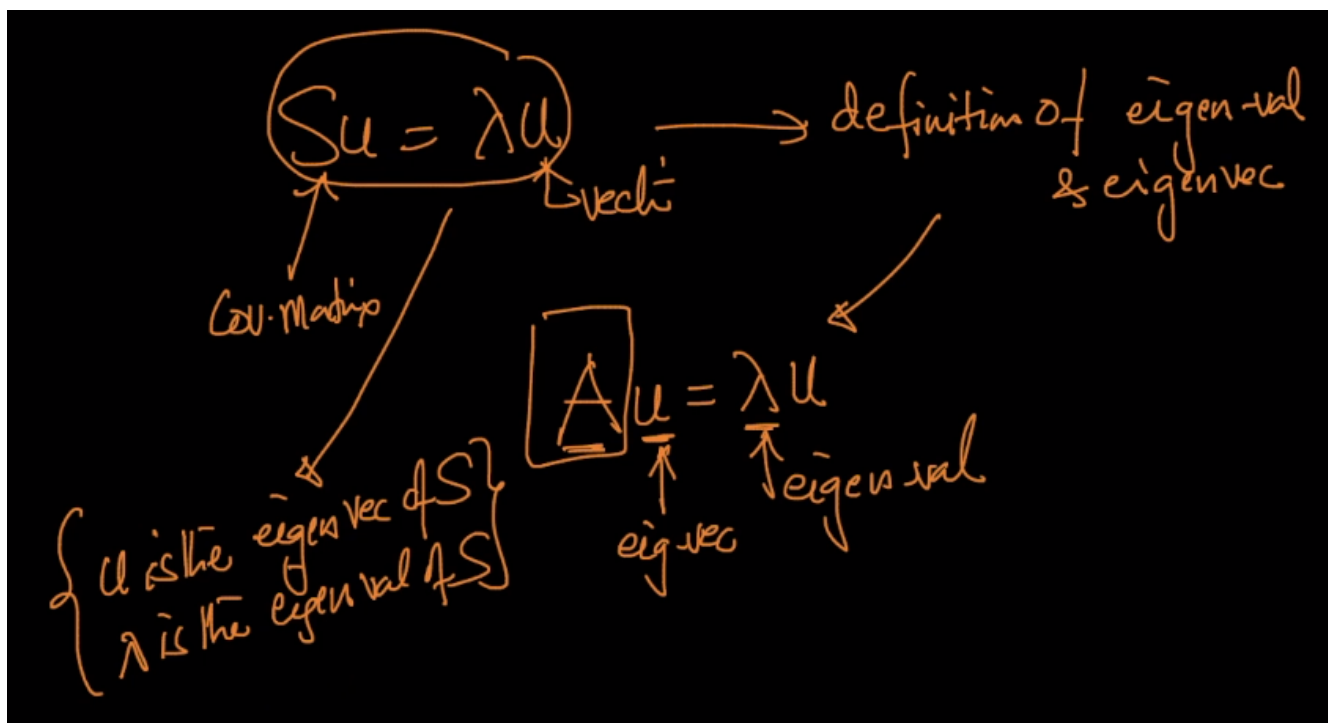 Su = λu
→ definition of eigen-val
& eigenvec
Cov. Matrix
A u = λ u
eigen val
eig vec
{ u is the eigen vec of S }
λ is the eigen val of S